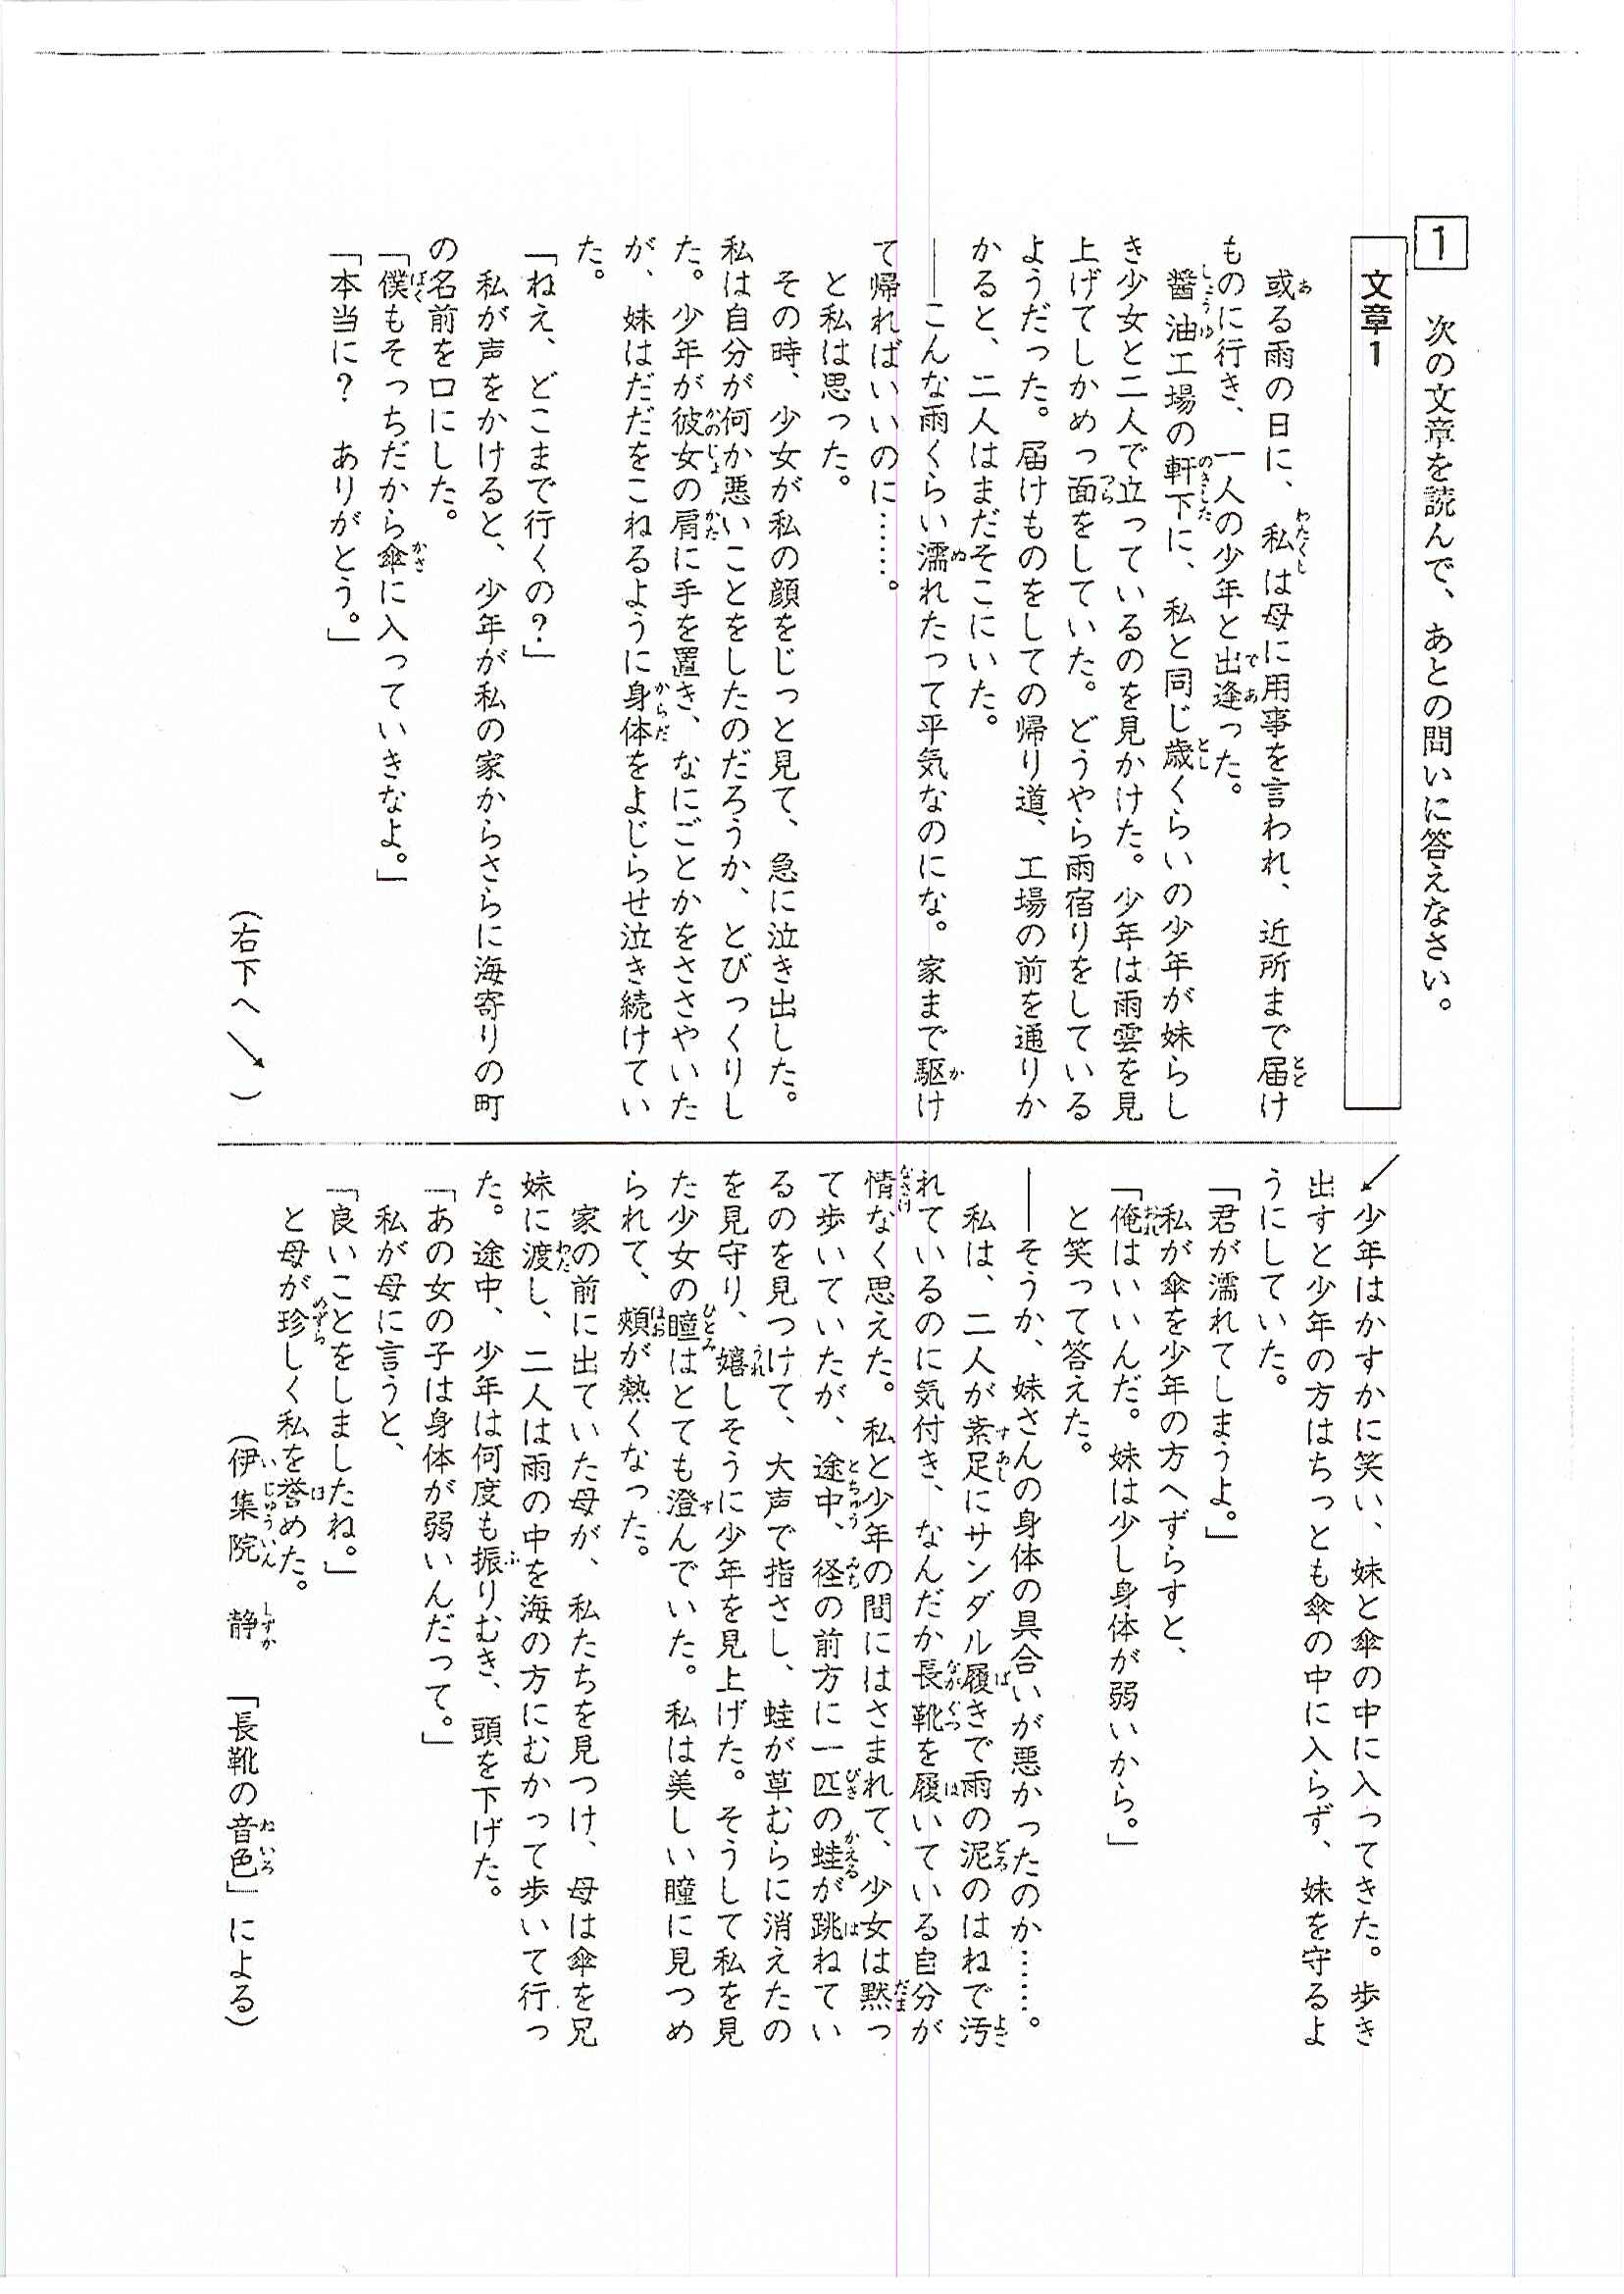 1 次の文章を読んで、あとの問いに答えなさい。
文章1
或る雨の日に、私は母に用事を言われ、近所まで届け
ものに行き、一人の少年と出逢った。
醬油工場の軒下に、私と同じ歳くらいの少年が妹らし
き少女と二人で立っているのを見かけた。少年は雨雲を見
上げてしかめっ面をしていた。どうやら雨宿りをしている
ようだった。届けものをしての帰り道、工場の前を通りか
かると、二人はまだそこにいた。
――こんな雨くらい濡れたって平気なのにな。家まで駆け
て帰ればいいのに……。
と私は思った。
その時、少女が私の顔をじっと見て、急に泣き出した。
私は自分が何か悪いことをしたのだろうか、とびっくりし
た。少年が彼女の肩に手を置き、なにごとかをささやいた
が、妹はだだをこねるように身体をよじらせ泣き続けてい
た。
「ねえ、どこまで行くの?」
私が声をかけると、少年が私の家からさらに海寄りの町
の名前を口にした。
「僕もそっちだから傘に入っていきなよ。」
「本当に? ありがとう。」
(右下へ↘)
↙少年はかすかに笑い、妹と傘の中に入ってきた。歩き
出すと少年の方はちっとも傘の中に入らず、妹を守るよ
うにしていた。
「君が濡れてしまうよ。」
私が傘を少年の方へずらすと、
「俺はいいんだ。妹は少し身体が弱いから。」
と笑って答えた。
――そうか、妹さんの身体の具合いが悪かったのか……。
私は、二人が素足にサンダル履きで雨の泥のはねで汚
れているのに気付き、なんだか長靴を履いている自分が
情なく思えた。私と少年の間にはさまれて、少女は黙っ
て歩いていたが、途中、径の前方に一匹の蛙が跳ねてい
るのを見つけて、大声で指さし、蛙が草むらに消えたの
を見守り、嬉しそうに少年を見上げた。そうして私を見
た少女の瞳はとても澄んでいた。私は美しい瞳に見つめ
られて、頰が熱くなった。
家の前に出ていた母が、私たちを見つけ、母は傘を兄
妹に渡し、二人は雨の中を海の方にむかって歩いて行っ
た。途中、少年は何度も振りむき、頭を下げた。
「あの女の子は身体が弱いんだって。」
私が母に言うと、
「良いことをしましたね。」
と母が珍しく私を誉めた。
(伊集院 静 「長靴の音色」による)